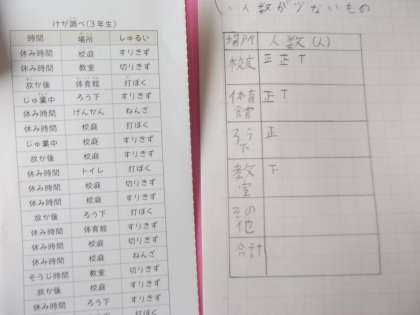 けが調べ(3年生)
時間 場所 しゅるい
休み時間 校庭 すりきず
休み時間 教室 切りきず
放か後 体育館 打ぼく
じゅ業中 ろう下 すりきず
休み時間 げんかん ねんざ
休み時間 校庭 打ぼく
じゅ業中 校庭 すりきず
放か後 校庭 すりきず
休み時間 トイレ 打ぼく
休み時間 校庭 切りきず
休み時間 校庭 すりきず
放か後 ろう下 打ぼく
休み時間 体育館 すりきず
休み時間 校庭 切りきず
休み時間 校庭 ねんざ
そうじ時間 教室 切りきず
放か後 校庭 すりきず
休み時間 ろう下 すりきず
休み時間 校庭 打ぼく
人数が少ないもの
場所 人数(人)
校庭 正 正 T
体育館 正 T
ろう下 正
教室 下
その他
合計